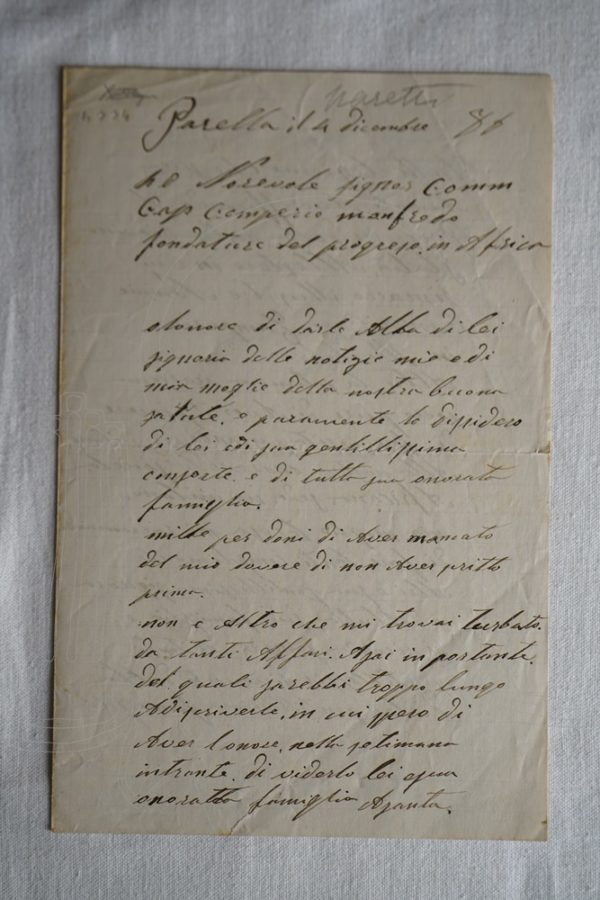 Naretti
4234
Parella il 4 dicembre 86
Lo Norevole signor Comm
Cap Camperio manfredo
fondature del progreso in Africa
elonore di darle Alla di lei
signoria delle notizie mie e di
mia moglie della nostra buona
salute. e paramente le dissidero
di lei e di sua gentillissima
consorte. e di tutta sua onorata
famiglia.
mille per doni di Aver mancato
del mio dovere di non Aver scritto
prima.
non e Altro che mi trovai turbato.
da tanti Affari. Asai in portante.
del quali sarebbi troppo lungo
Adiscriverle. in cui spero di
Aver lonore. nella setimana
intrante. di viderlo lei e sua
onoratta famiglia Asanta.